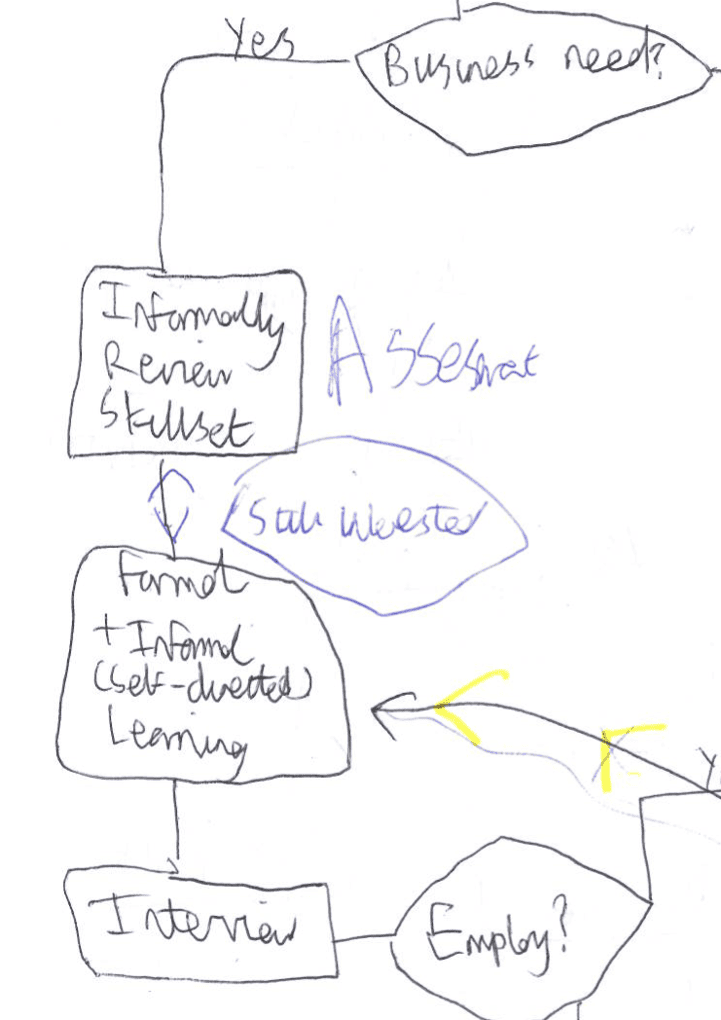 Yes
Business need?
Informally
Review
Skillset
Assesmet
Still interested
Formal
+ Informal
(self-directed)
Learning
Y
Interview
Employ?